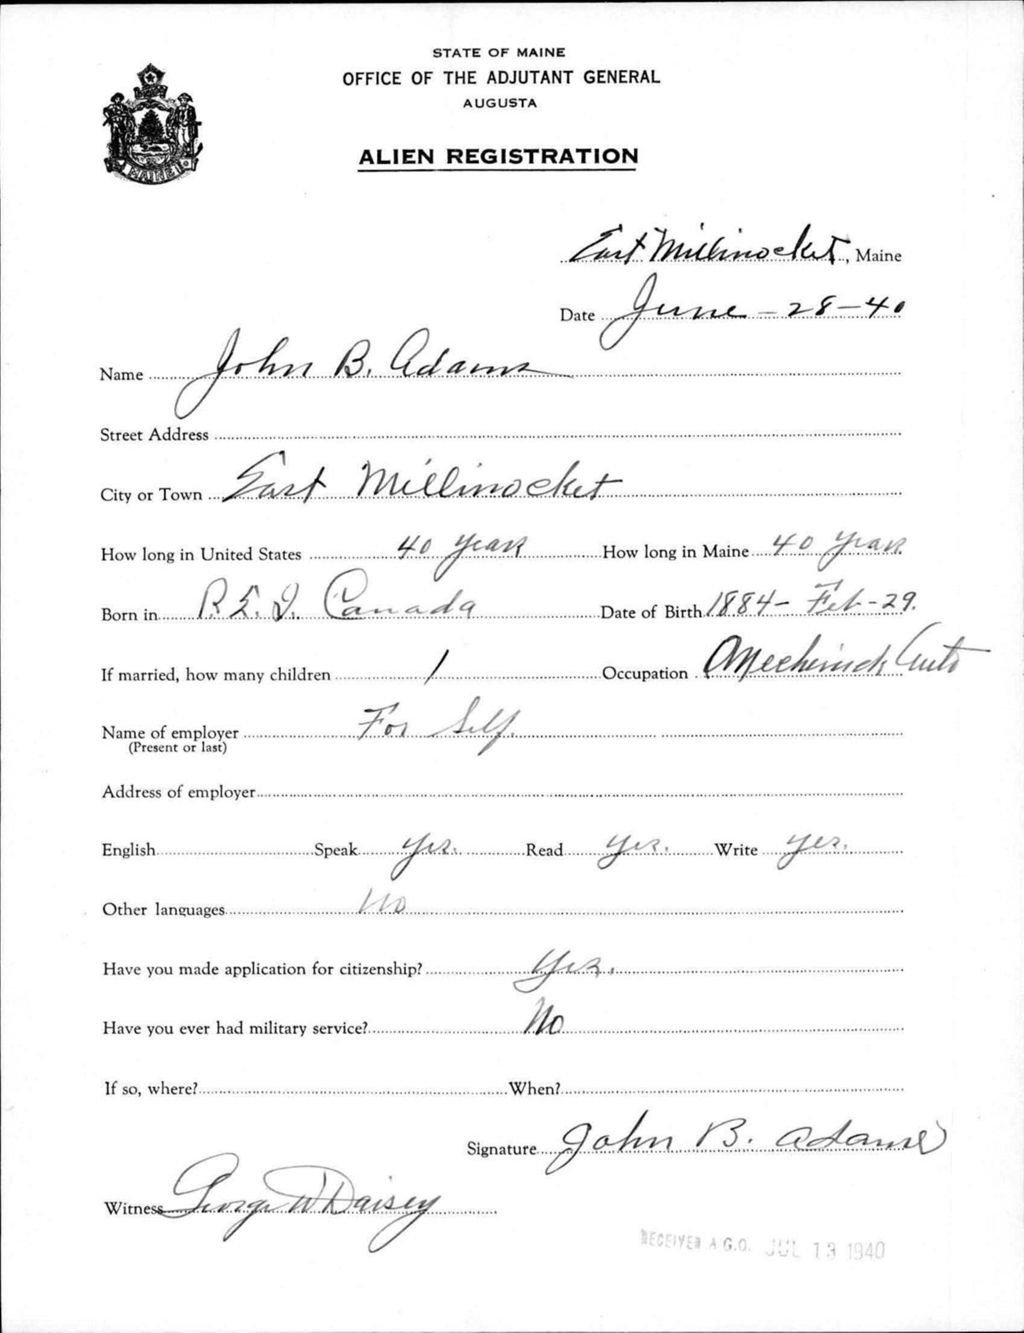 STATE OF MAINE
OFFICE OF THE ADJUTANT GENERAL
AUGUSTA
ALIEN REGISTRATION
MAINE
East Millinocket, Maine
Date June - 28 - 40
Name John B. Adams
Street Address
City or Town East Millinocket
How long in United States 40 years How long in Maine 40 years
Born in P. E. I. Canada Date of Birth 1884 - Feb - 29.
If married, how many children 1 Occupation Mechinick Auto
Name of employer For Self.
(Present or last)
Address of employer
English Speak yes. Read yes. Write yes.
Other languages No
Have you made application for citizenship? Yes.
Have you ever had military service? No
If so, where? When?
Signature John B. Adams
Witness George W Daisey
RECEIVED A.G.O. JUL 13 1940